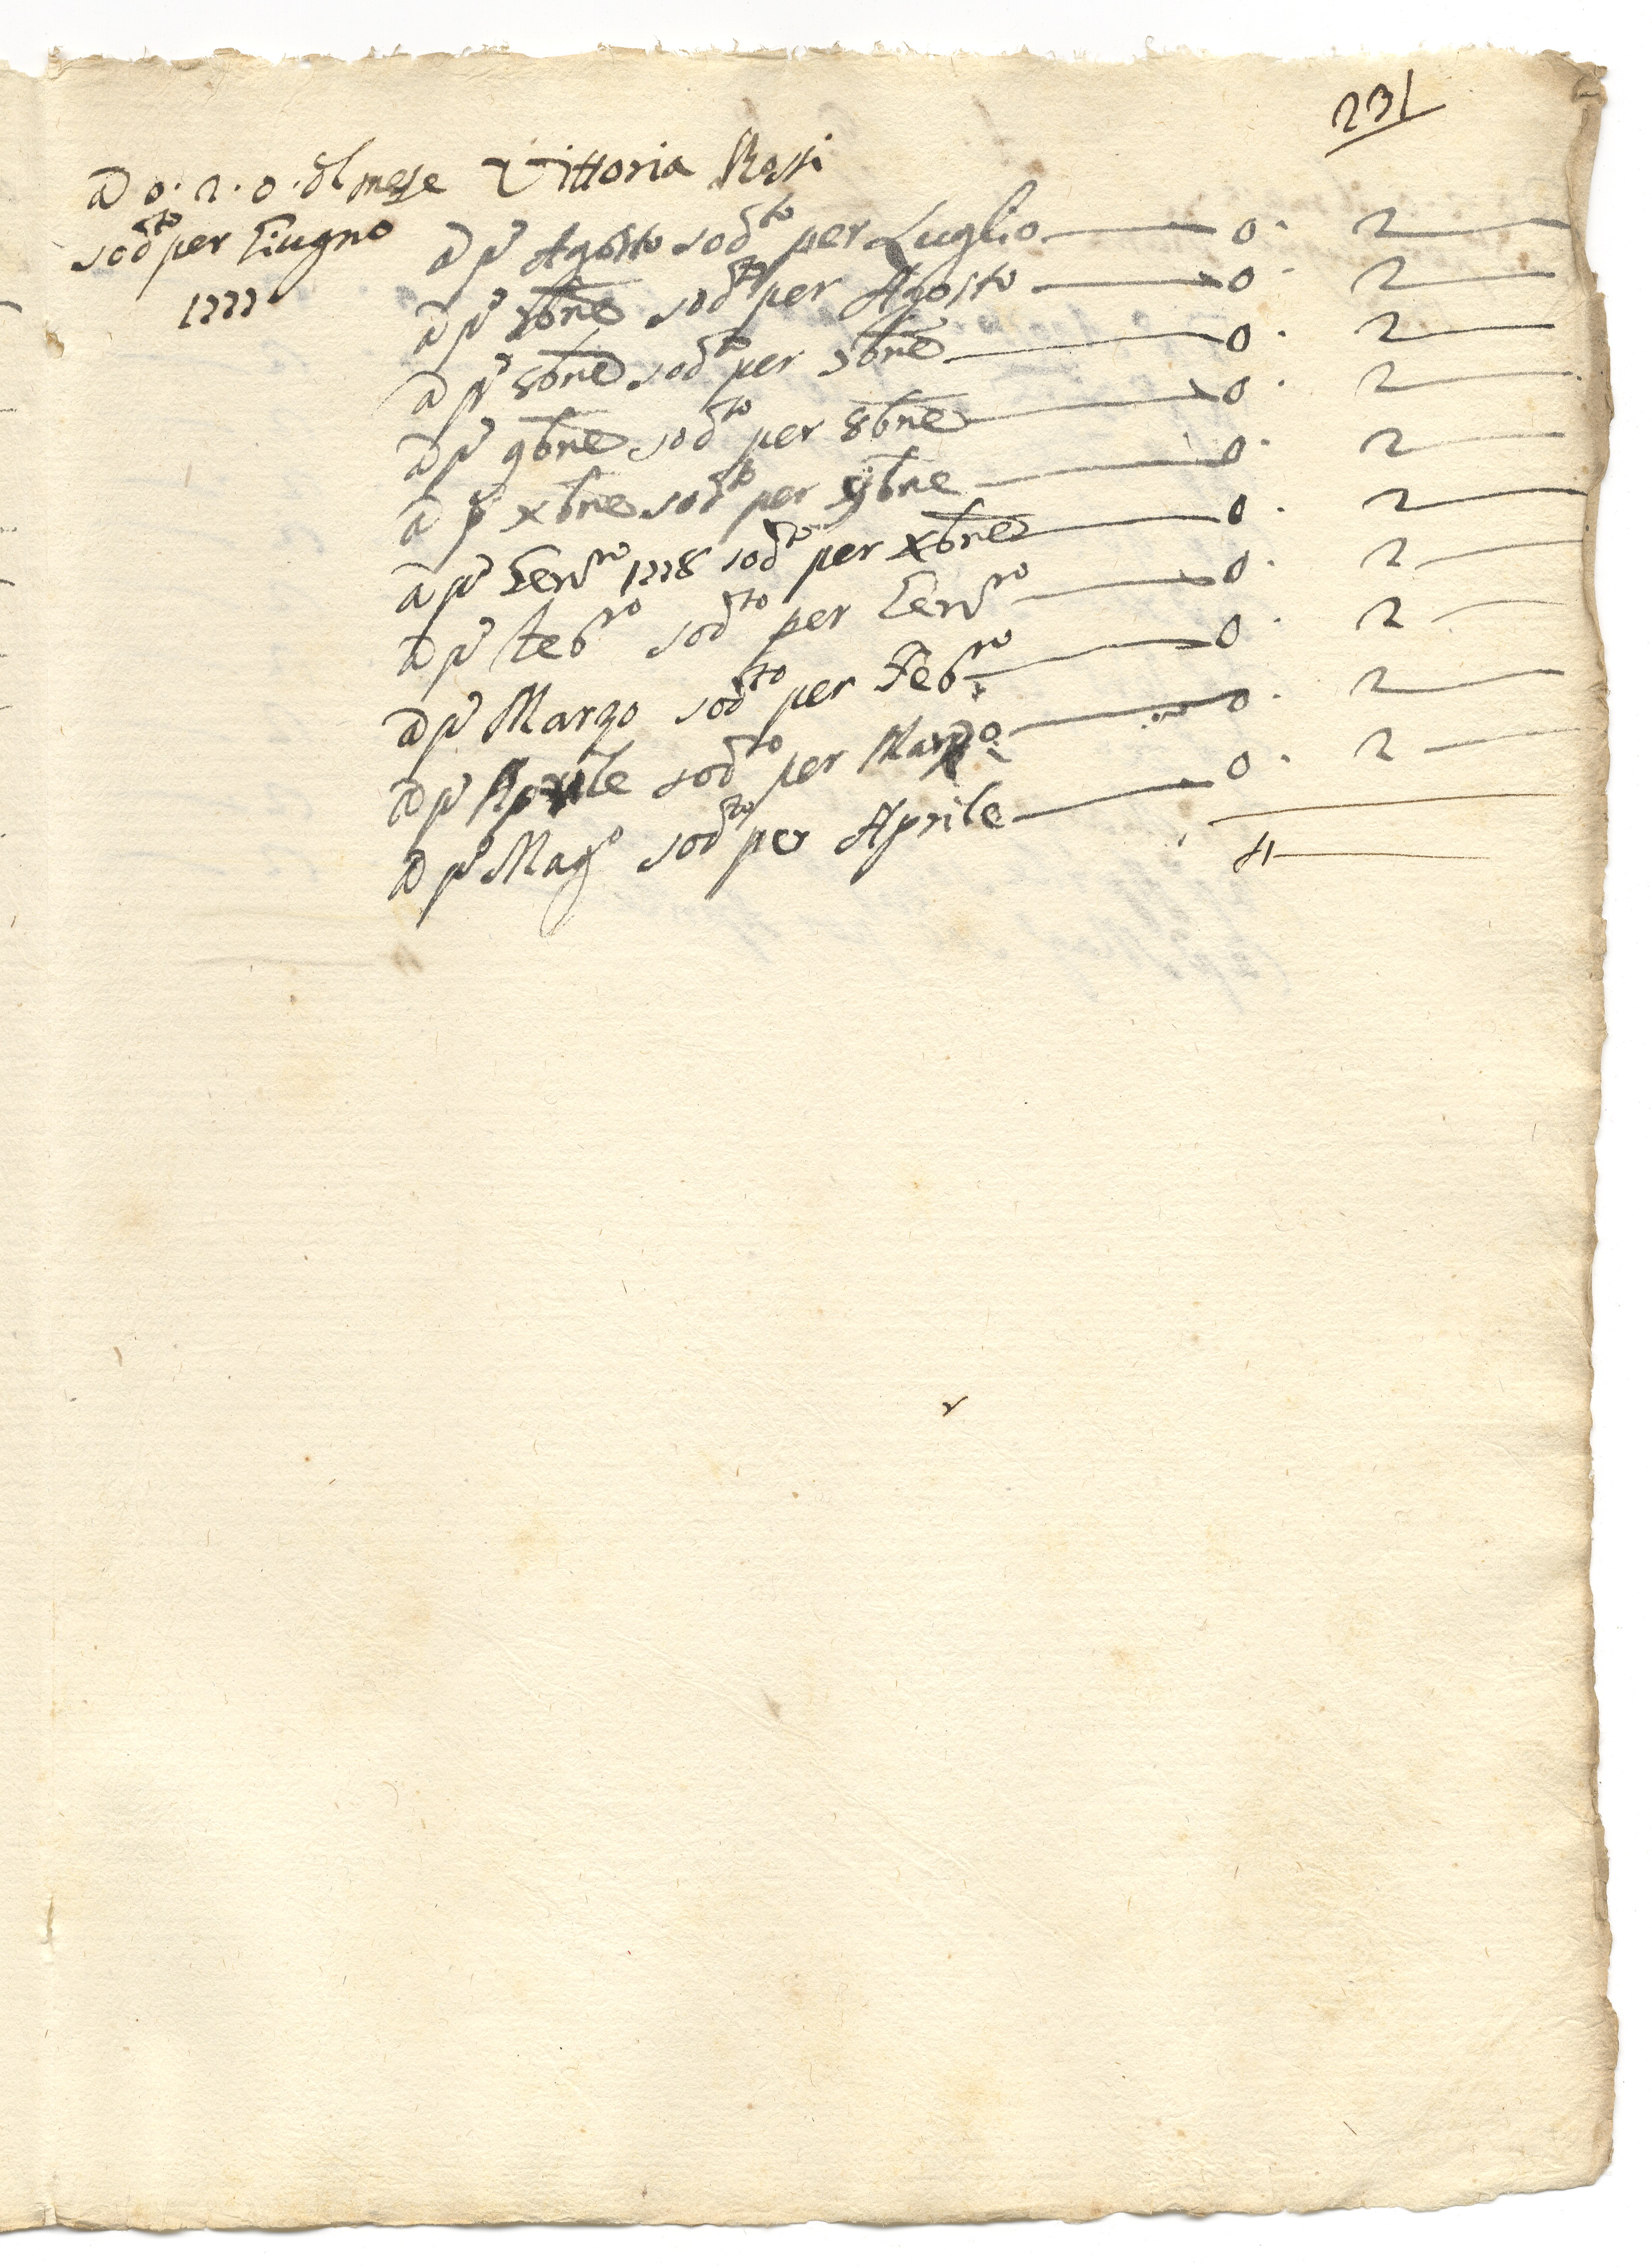 231
a 0. 2. 0. dl mese Vittoria Rossi
sodto per Giugno
1777
a pº Agosto sodto per Luglio — 0. 2 —
a pº 7bre sodto per Agosto — 0. 2 —
a pº 8bre sodto per 7bre — 0. 2 —
a pº 9bre sodto per 8bre — 0. 2 —
a pº xbre sodto per 9bre — 0. 2 —
a pº Genro 1778 sodto per xbre — 0. 2 —
a pº Febro sodto per Genro — 0. 2 —
a pº Marzo sodto per Febro — 0. 2 —
a pº Aprile sodto per Marzo — 0. 2 —
a pº Mago sodto per Aprile — 0. 2 —